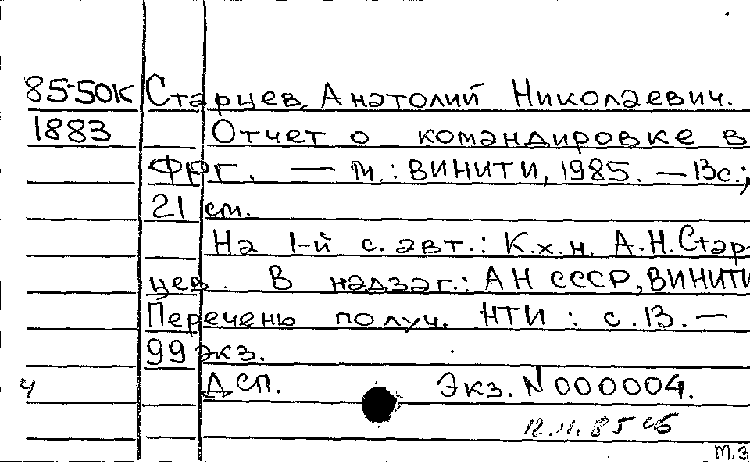 85-50К Старцев, Анатолий Николаевич.
1883 Отчет о командировке в
ФРГ. — М.: ВИНИТИ, 1985. — 13 с.;
21 см.
На 1-й с. авт.: К.х.н. А.Н. Стар-
цев. В надзаг.: АН СССР, ВИНИТИ
Перечень получ. НТИ: с. 13. —
99 экз.
Ч ДСП. Экз. N 000004.
12.11.85
М.З